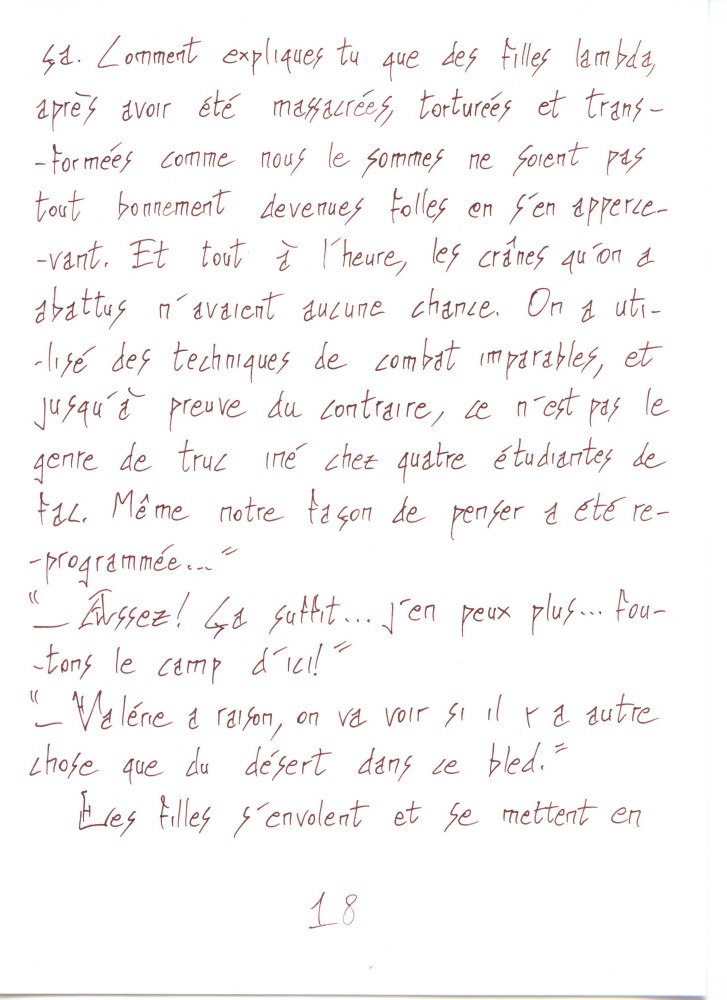 ça. Comment expliques tu que des filles lambda,
après avoir été massacrées, torturées et trans-
-formées comme nous le sommes ne soient pas
tout bonnement devenues folles en s'en apperce-
-vant. Et tout à l'heure, les crânes qu'on a
abattus n'avaient aucune chance. On a uti-
-lisé des techniques de combat imparables, et
jusqu'à preuve du contraire, ce n'est pas le
genre de truc iné chez quatre étudiantes de
fac. Même notre façon de penser a été re-
-programmée..."
"_ Assez! Ça suffit... j'en peux plus... fou-
-tons le camp d'ici!"
"_ Valérie a raison, on va voir si il y a autre
chose que du désert dans ce bled."
Les filles s'envolent et se mettent en
18